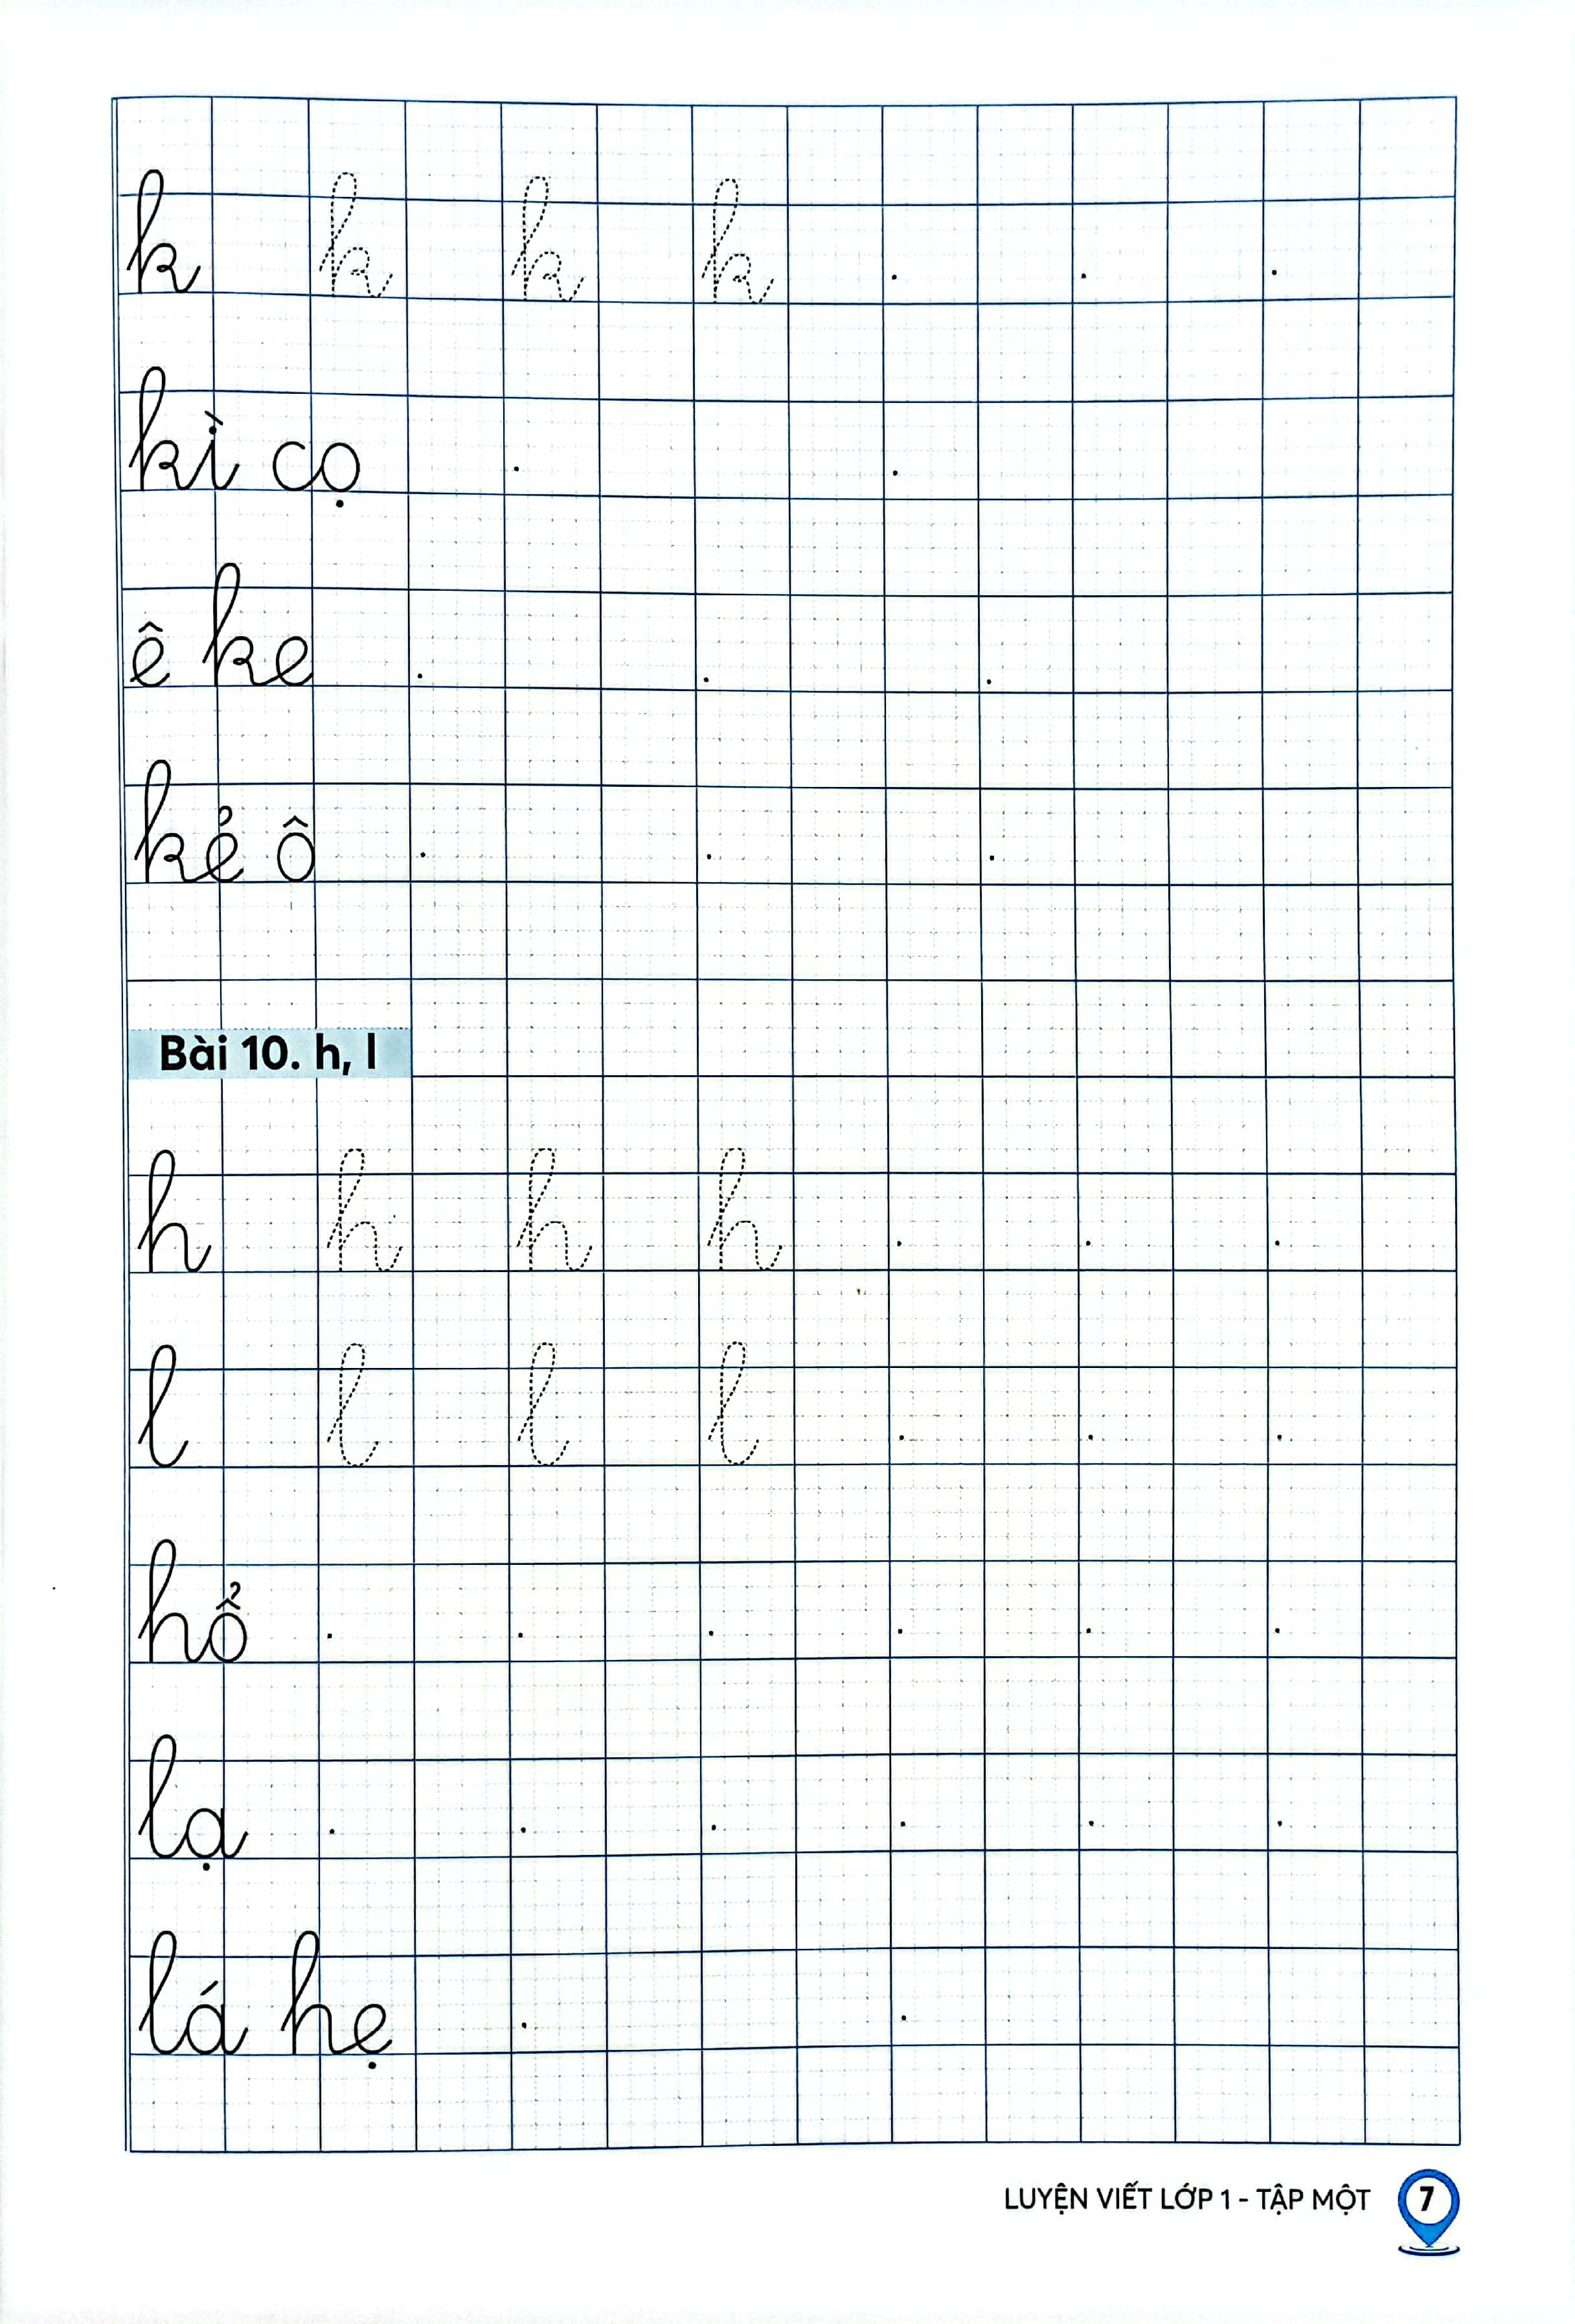 k k k k
kì cọ
ê ke
kẻ ô
Bài 10. h, l
h h h h
l l l l
hổ
lạ
lá hẹ
LUYỆN VIẾT LỚP 1 - TẬP MỘT 7